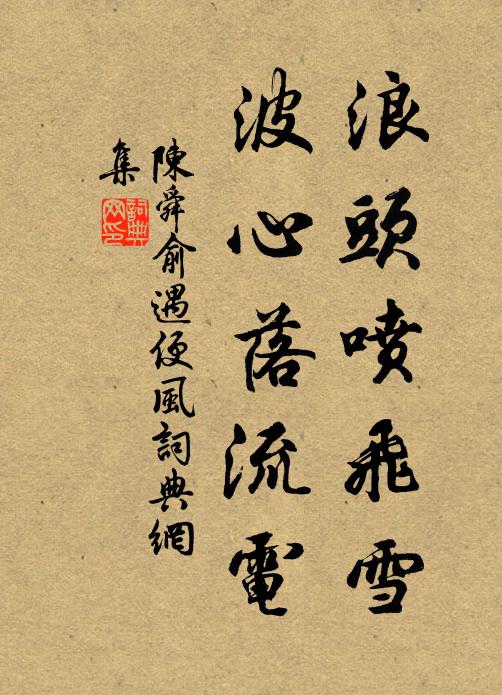 浪頭噴飛雪
波心落流電
陳舜俞遇便風詞典網
集
詞典網印